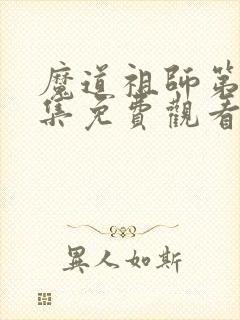 魔道祖師第
集免費觀看
異人如斯